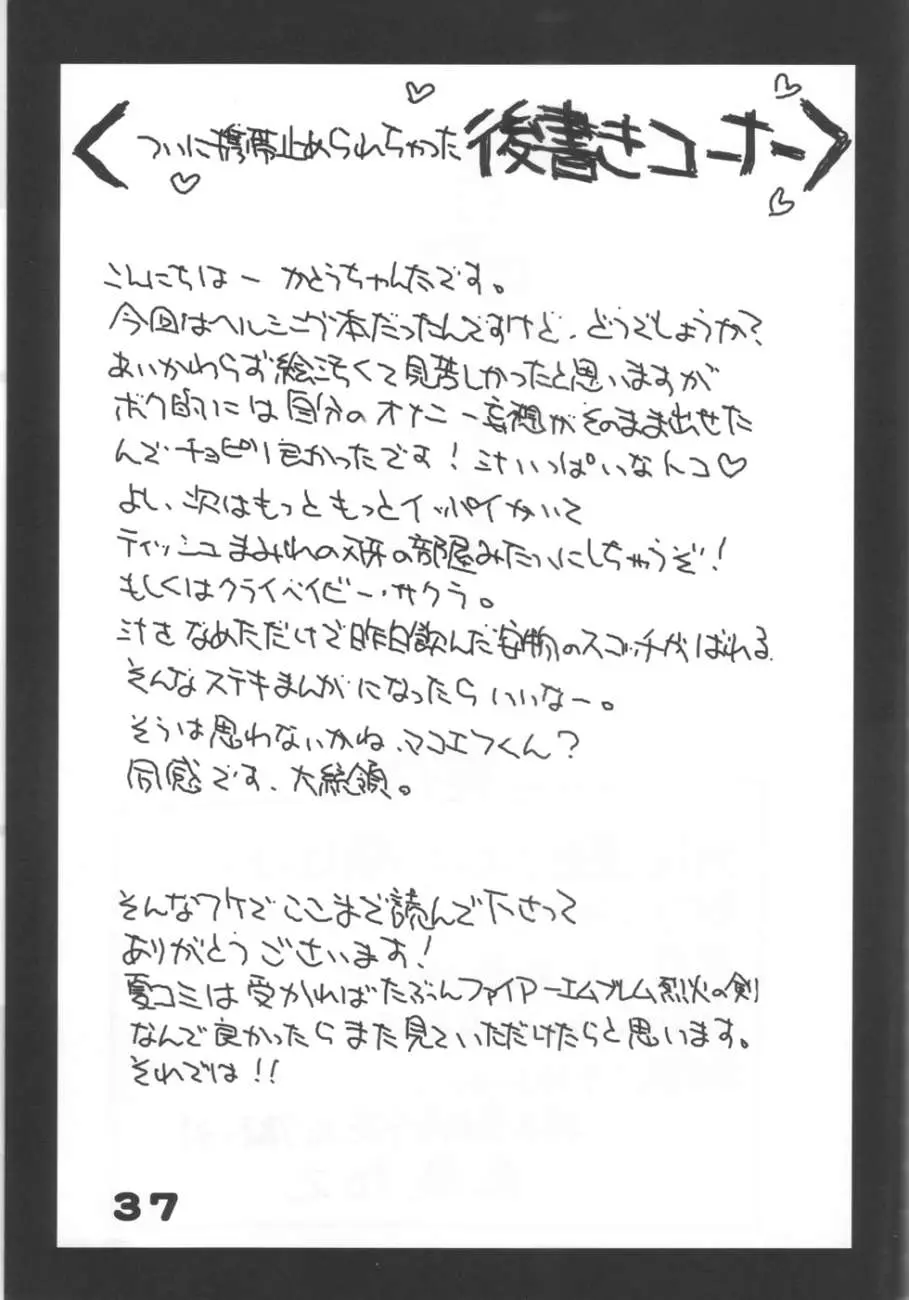 ついに携帯止められちゃった後書きコーナー
こんにちはー かとうちゃんたです。
今回はヘルシング本だったんですけど、どうでしょうか?
あいかわらず絵汚くて見苦しかったと思いますが
ボク的には自分のオナニー妄想がそのまま出せた
んで チョピリ良かったです! 汁いっぱいなトコ♡
よし、次はもっともっとイッパイかいて
ティッシュまみれの の部屋みたいにしちゃうぞ!
もしくはクライベイビー・サクラ。
汁をなめただけで昨日飲んだ安物のスコッチがばれる
そんなステキまんがになったらいいなー。
そうは思わないかね、マコエフくん?
同感です、大統領。
そんなワケでここまで読んで下さって
ありがとうございます!
夏コミは受かればたぶんファイアーエムブレム烈火の剣
なんで良かったらまた見ていただけたらと思います。
それでは!!
37